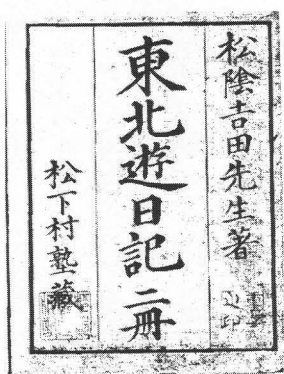 松陰吉田先生著
東北遊日記 二冊
松下村塾藏